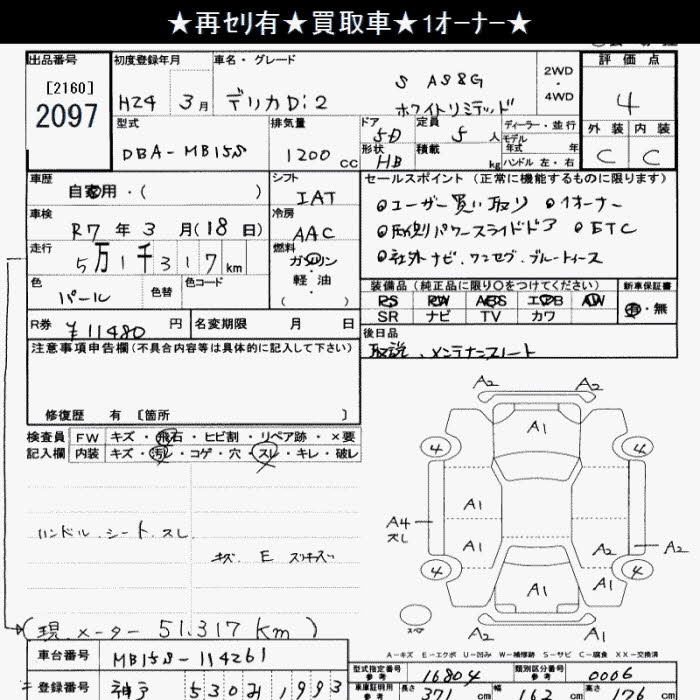 ★再ｾﾘ有★買取車★1ｵｰﾅｰ★
出品番号 初度登録年月 車名・グレード 評価点
[2160]
2097
H24 3月 デリカD:2 S AS&G ホワイトリミテッド 2WD・4WD 4
型式 排気量 ドア 定員 ディーラー・並行 外装 内装
DBA-MB15S 1200cc 5D 5人 モデル年式 年 C C
形状 HB 積載 kg ハンドル 左・右
車歴 自家用・( ) シフト IAT セールスポイント(正常に機能するものに限ります)
●ユーザー買い取り ●1オーナー
車検 R7年3月(18日) 冷房 AAC
●両側パワースライドドア ●ETC
走行 5万1千317km 燃料 ガソリン・軽油・( )
●社外ナビ、ワンセグ、ブルートゥース
色 パール 色替 色コード
装備品(純正品に限り○をつけてください) 新車保証書
PS PW ABS エアB AW 有・無
SR ナビ TV カワ
R券 ¥11480円 名変期限 月 日
後日品
取説、メンテナンスノート
注意事項申告欄(不具合内容等は具体的に記入して下さい)
修復歴 有 [箇所 ]
検査員記入欄 FW キズ・飛石・ヒビ割・リペア跡・×要
内装 キズ・汚レ・コゲ・穴・スレ・キレ・破レ
A2 A2
A1
4 4
A4 スレ A1
A1 A2 A2
4 A1 A1 4
スペア A2 A2
ハンドル、シート、スレ
キズ、E スリキズ
(現メーター 51.317km)
A-キズ E-エクボ U-凹み W-補修跡 S-サビ C-腐食 XX-交換済
車台番号 MB15S-114261
型式指定番号 参考 16804 類別区分番号 参考 0006
登録番号 神戸 530 み 1993
車庫証明用 参考 長さ 371cm 幅 162cm 高さ 176cm